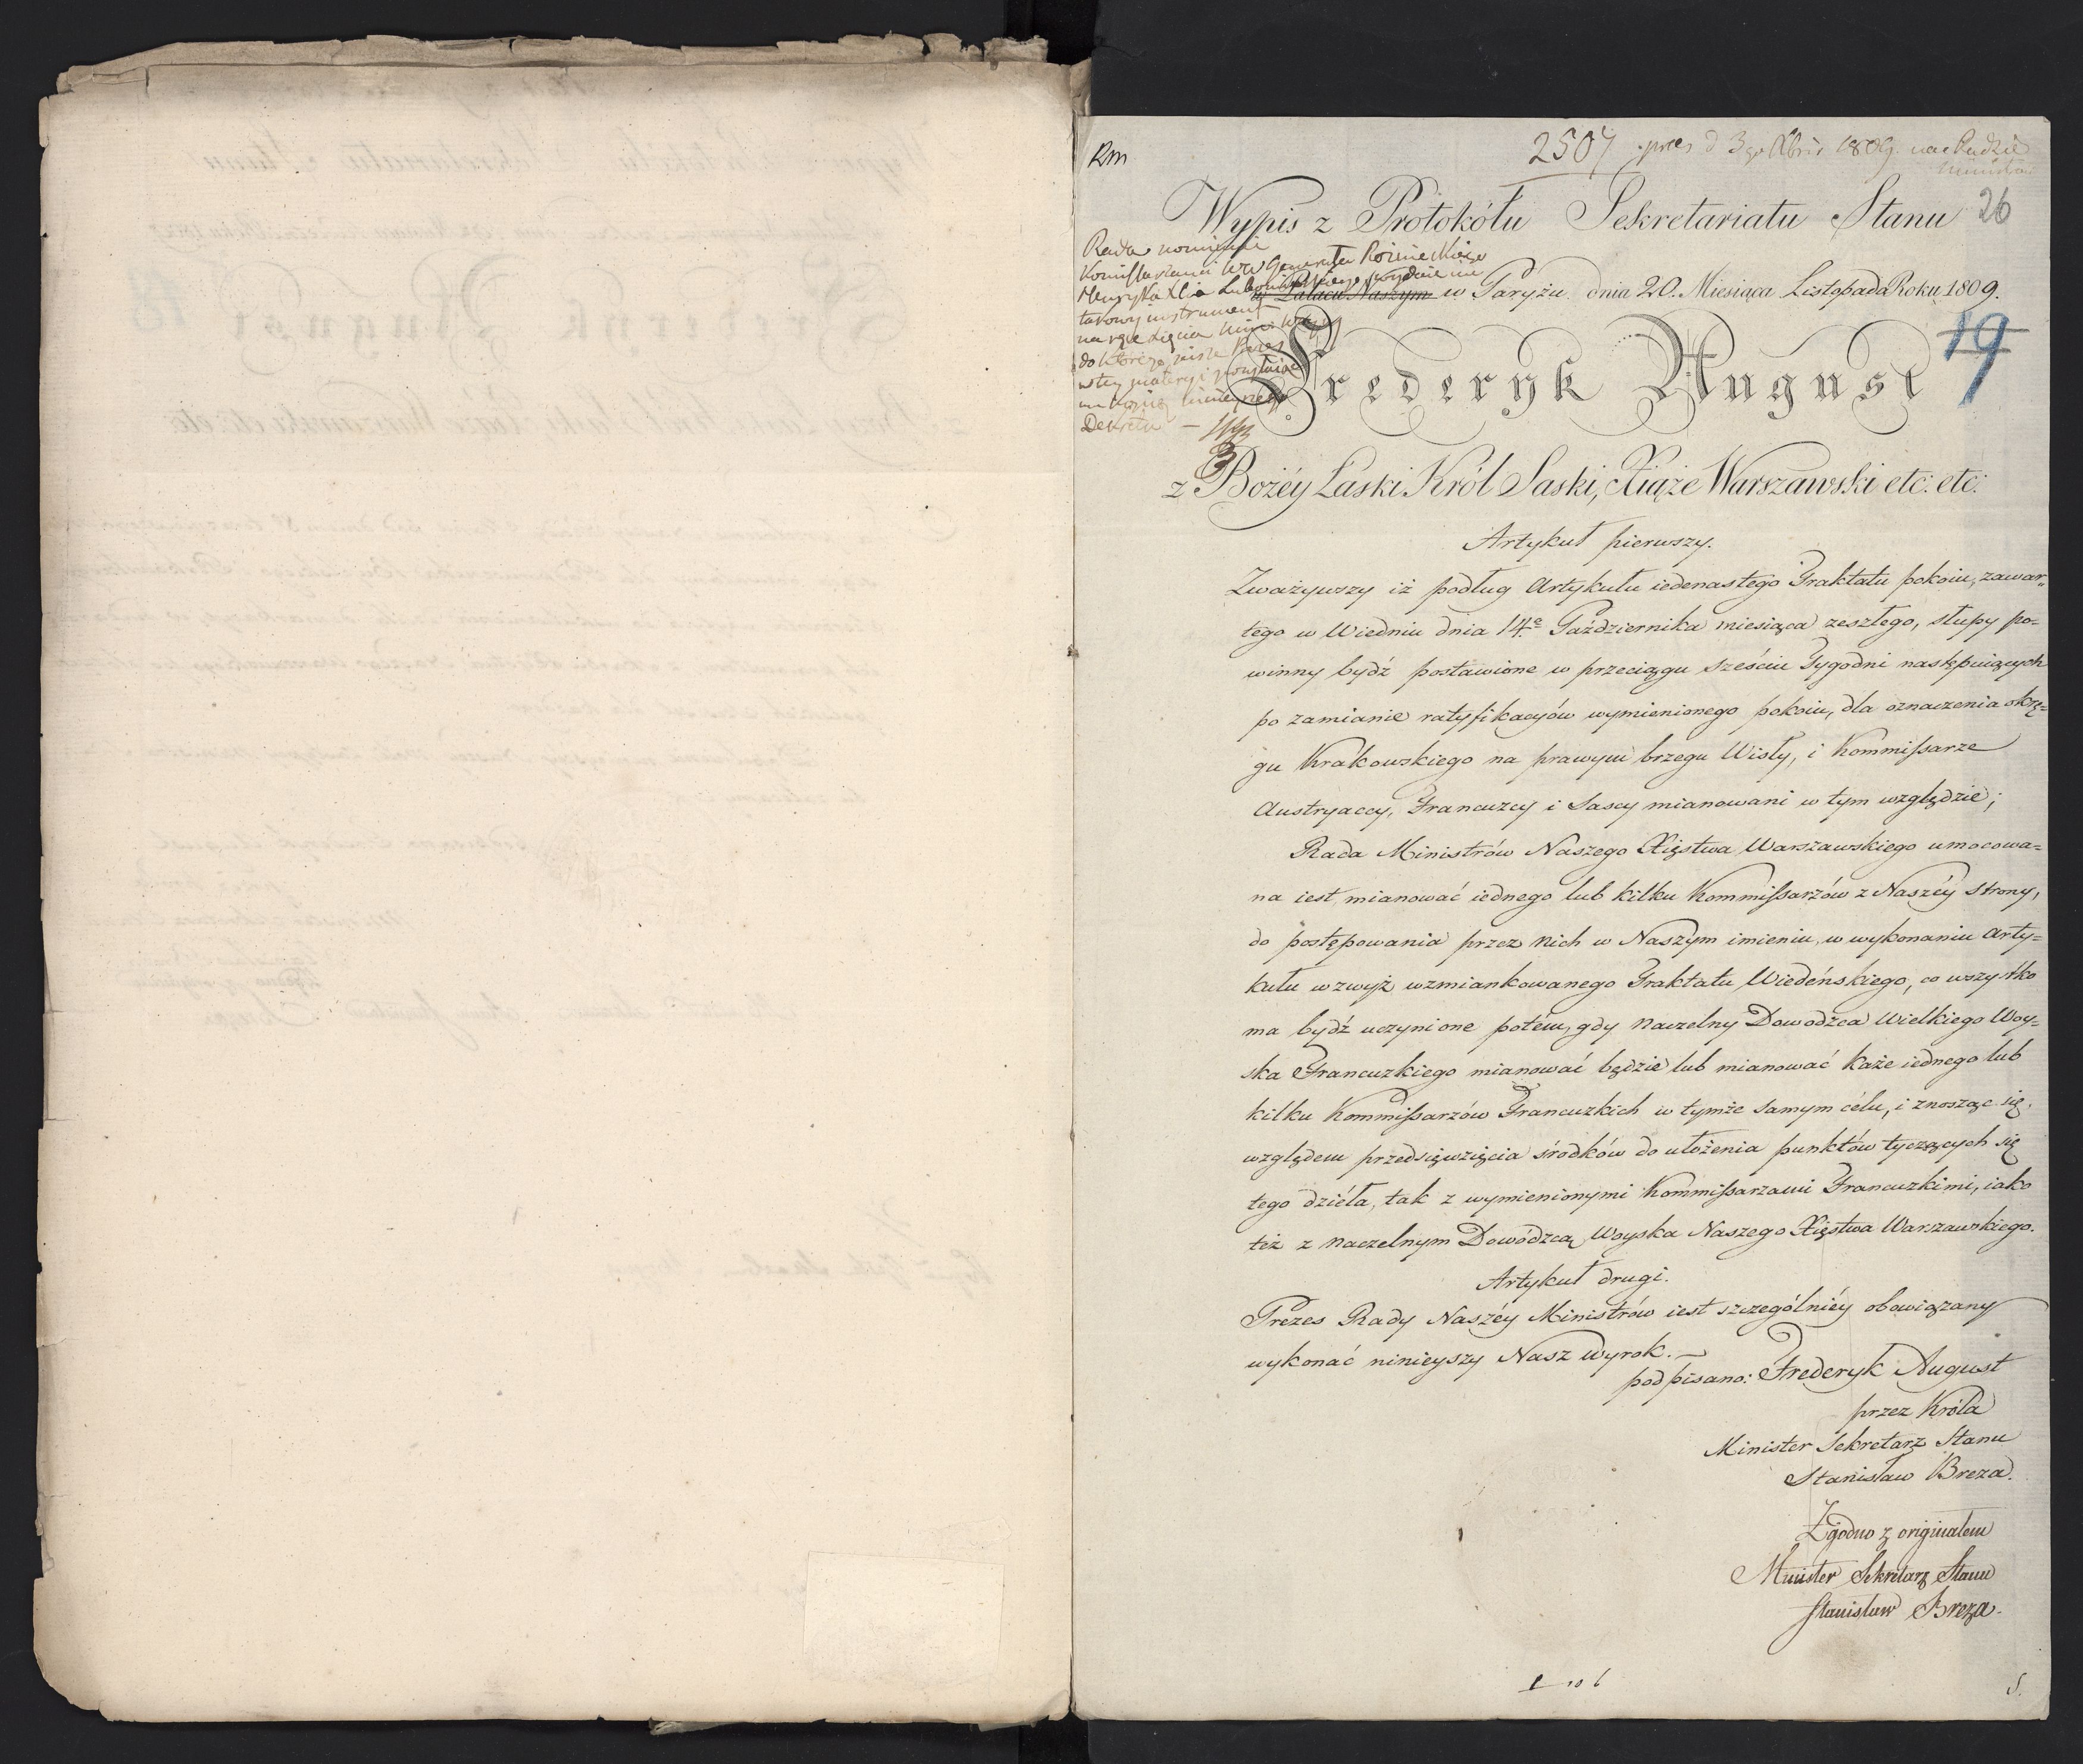 Rm
2507 pres d 3 go Xbris 1809. na Radzie
Ministrów
Wypis z Protokółu Sekretariatu Stanu 26
w Pałacu Naszym w Paryżu dnia 20. Miesiąca Listopada Roku 1809.
Rada nominuie
Kommissarzami WW Generała Rożnieckiego
Henryka Xcia Lubomirskiego
takowy instrument
na ręce Xięcia
do którego pisze Prezes
w tey materyi
Dekretu
19
Frederyk August
z Bożéy Łaski Król Saski, Xiąże Warszawski etc: etc:
Artykuł pierwszy.
Zważywszy iż podług Artykułu iedenastego Traktatu pokoiu, zawar„
tego w Wiedniu dnia 14.e Października miesiąca zeszłego, słupy po=
winny bydź postawione w przeciągu sześciu Tygodni następuiących
po zamianie ratyfikacyów wymienionego pokoiu, dla oznaczenia okrę=
gu Krakowskiego na prawym brzegu Wisły, i Kommissarze
Austryaccy, Francuzcy i Sascy mianowani w tym względzie;
Rada Ministrów Naszego Xięstwa Warszawskiego umocowa=
na iest, mianować iednego lub kilku Kommissarzów z Naszéy strony,
do postępowania przez nich w Naszym imieniu, w wykonaniu Arty=
kułu wzwyż wzmiankowanego Traktatu Wiedeńskiego, co wszystko
ma bydź uczynione potém, gdy Naczelny Dowodzca Wielkiego Woy=
ska Francuzkiego mianować będzie lub mianować każe iednego lub
kilku Kommissarzów Francuzkich w tymże samym célu, i znosząc się
względem przedsięwzięcia środków do ułożenia punktów tyczących się
tego dzieła, tak z wymienionymi Kommissarzami Francuzkimi, iako
też z Naczelnym Dowódzcą Woyska Naszego Xięstwa Warszawskiego.
Artykuł drugi.
Prezes Rady Naszéy Ministrów iest szczególniéy obowiązany
wykonać ninieyszy Nasz Wyrok. —
podpisano: Frederyk August
przez Króla
Minister Sekretarz Stanu
Stanisław Breza.
Zgodno z originałem
Minister Sekretarz Stanu
Stanisław Breza.